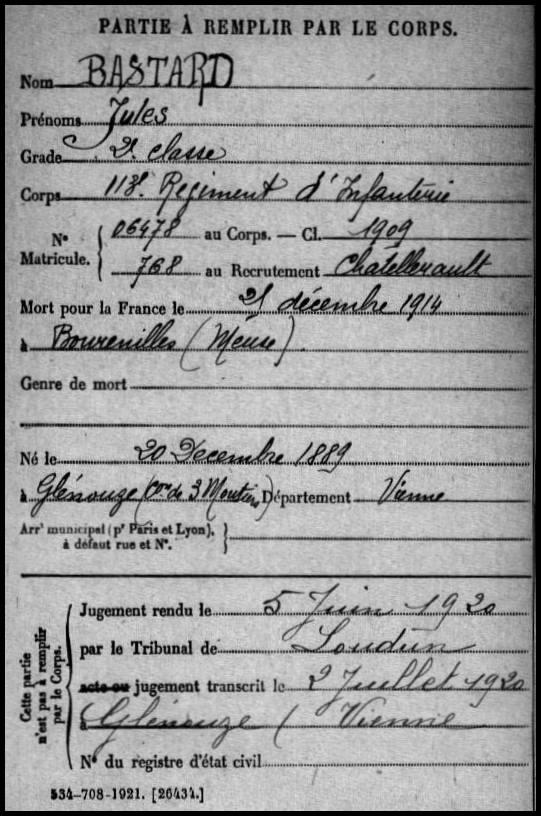 PARTIE À REMPLIR PAR LE CORPS.
Nom BASTARD
Prénoms Jules
Grade 2e classe
Corps 113e Regiment d'Infanterie
N° Matricule. { 06478 au Corps. — Cl. 1909
768 au Recrutement Chatellerault
Mort pour la France le 21 décembre 1914
à Boureuilles (Meuse)
Genre de mort
Né le 20 Decembre 1889
à Glénouze (Con de 3 Moutiers) Département Vienne
Arrt municipal (pr Paris et Lyon), à défaut rue et N°. }
Cette partie n'est pas à remplir par le Corps. {
Jugement rendu le 5 Juin 1920
par le Tribunal de Loudun
acte ou jugement transcrit le 2 Juillet 1920
à Glénouze (Vienne
N° du registre d'état civil
534-708-1921. [26434.]